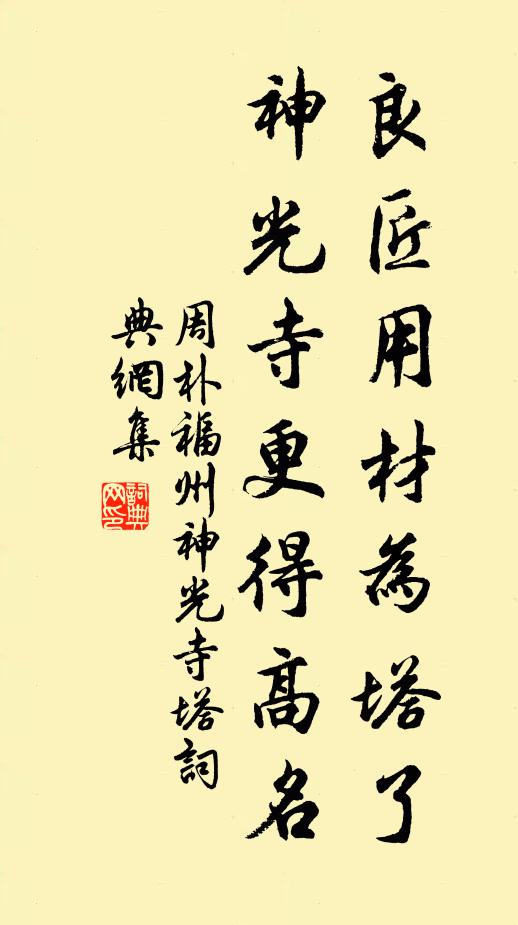 良匠用材為塔了
神光寺更得高名
周朴福州神光寺塔詞
典網集
詞典
网印